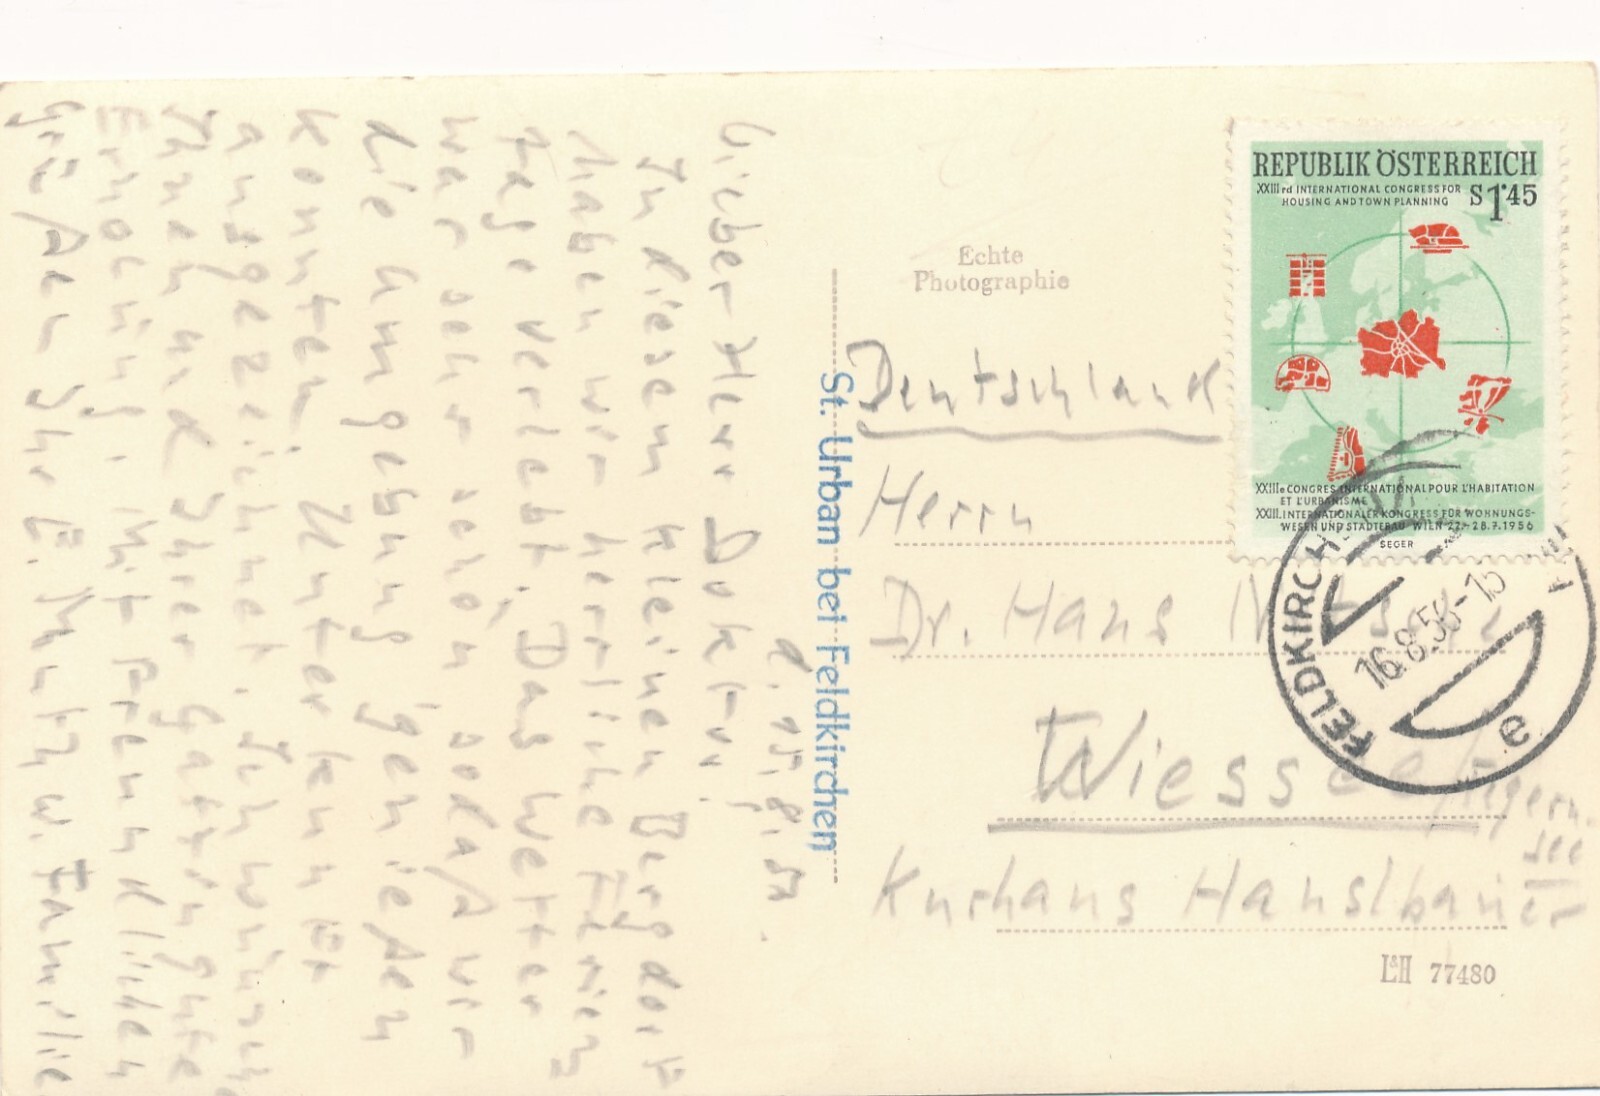 d. 15. 8. 56
Lieber Herr Doktor!
In diesem kleinen Bergdorf
haben wir herrliche Ferien
tage verlebt. Das Wetter
war sehr schön sodaß wir
die Umgebung genießen
konnten. Unterkunft
ausgezeichnet. Ich wünsche
Ihnen und Ihrer Gattin gute
Erholung. Mit freundlichen
Grüßen Ihr E. u. Familie
St. Urban bei Feldkirchen
Echte
Photographie
Deutschland
Herrn
Dr. Hans
Wiessee / Tegern-
see
Kurhaus Hanslbauer
L&H 77480
REPUBLIK ÖSTERREICH
XXIIIrd INTERNATIONAL CONGRESS FOR
HOUSING AND TOWN PLANNING
S 1·45
XXIIIe CONGRES INTERNATIONAL POUR L'HABITATION
ET L'URBANISME
XXIII. INTERNATIONALER KONGRESS FÜR WOHNUNGS-
WESEN UND STÄDTEBAU WIEN 22.-28.7.1956
SEGER
FELDKIRCHEN
16.8.56-15
e